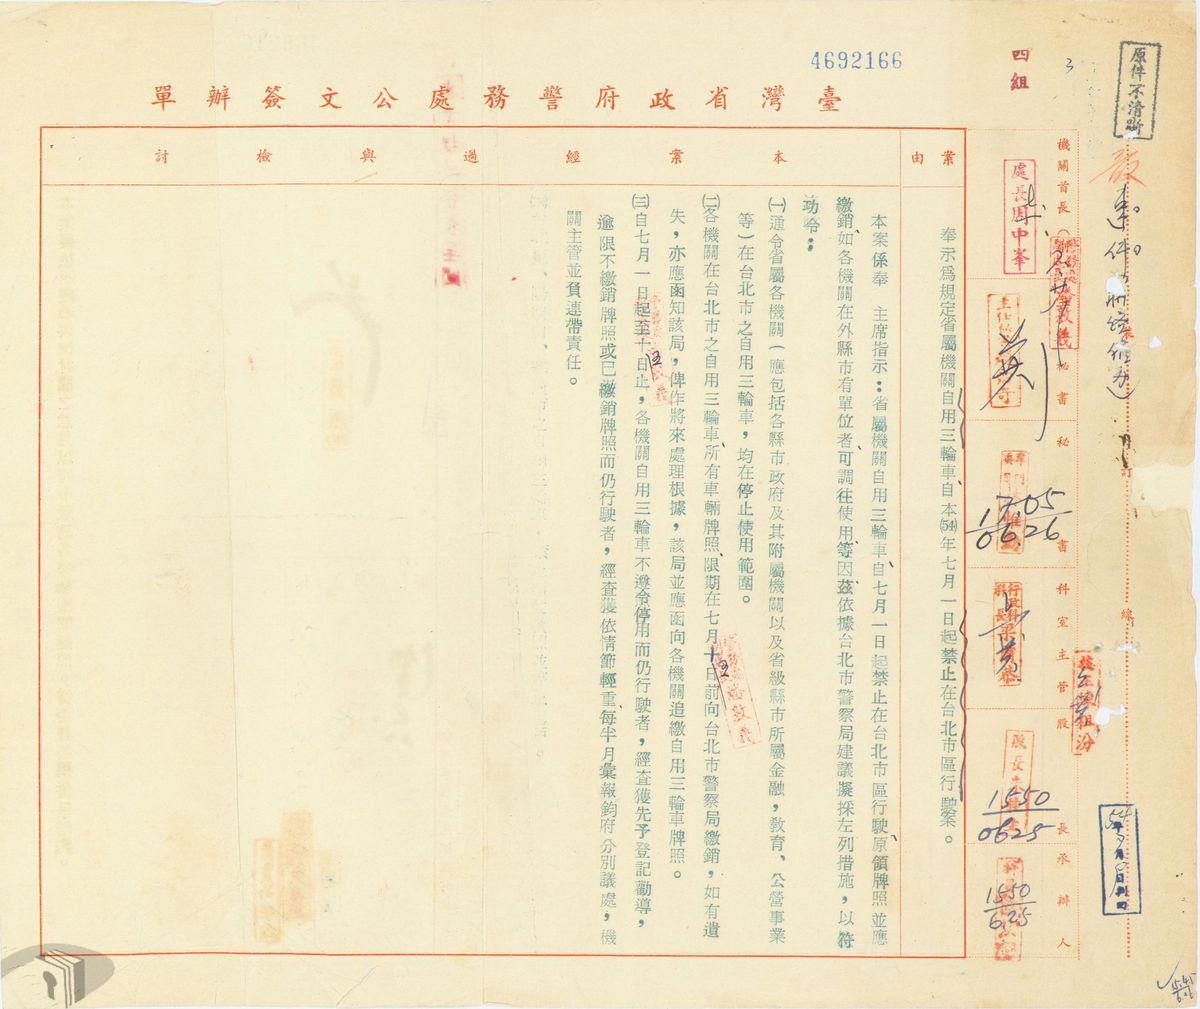 原件不清晰
4692166
四組
3
臺灣省政府警務處公文簽辦單
機關首長
秘書
秘書
科室主管
股長
承辦人
訂
線
處長周中峯
17.05
06.26
1550
0625
1550
6.25
案由
奉示為規定省屬機關自用三輪車自本(54)年七月一日起禁止在台北市區行駛案。
本案經過與檢討
本案係奉 主席指示：省屬機關自用三輪車自七月一日起禁止在台北市區行駛原領牌照並應
繳銷如各機關在外縣市有單位者可調往使用等因茲依據台北市警察局建議擬採左列措施，以符
功令：
㈠通令省屬各機關（應包括各縣市政府及其附屬機關以及省級縣市所屬金融，教育、公營事業
等）在台北市之自用三輪車，均在停止使用範圍。
㈡各機關在台北市之自用三輪車所有車輛牌照限期在七月十五日前向台北市警察局繳銷，如有遺
失，亦應函知該局，俾作將來處理根據，該局並應函向各機關追繳自用三輪車牌照。
㈢自七月一日起至十五日止，各機關自用三輪車不遵令停用而仍行駛者，經查獲先予登記勸導，
逾限不繳銷牌照或已繳銷牌照而仍行駛者，經查獲依情節輕重每半月彙報鈞府分別議處，機
關主管並負連帶責任。